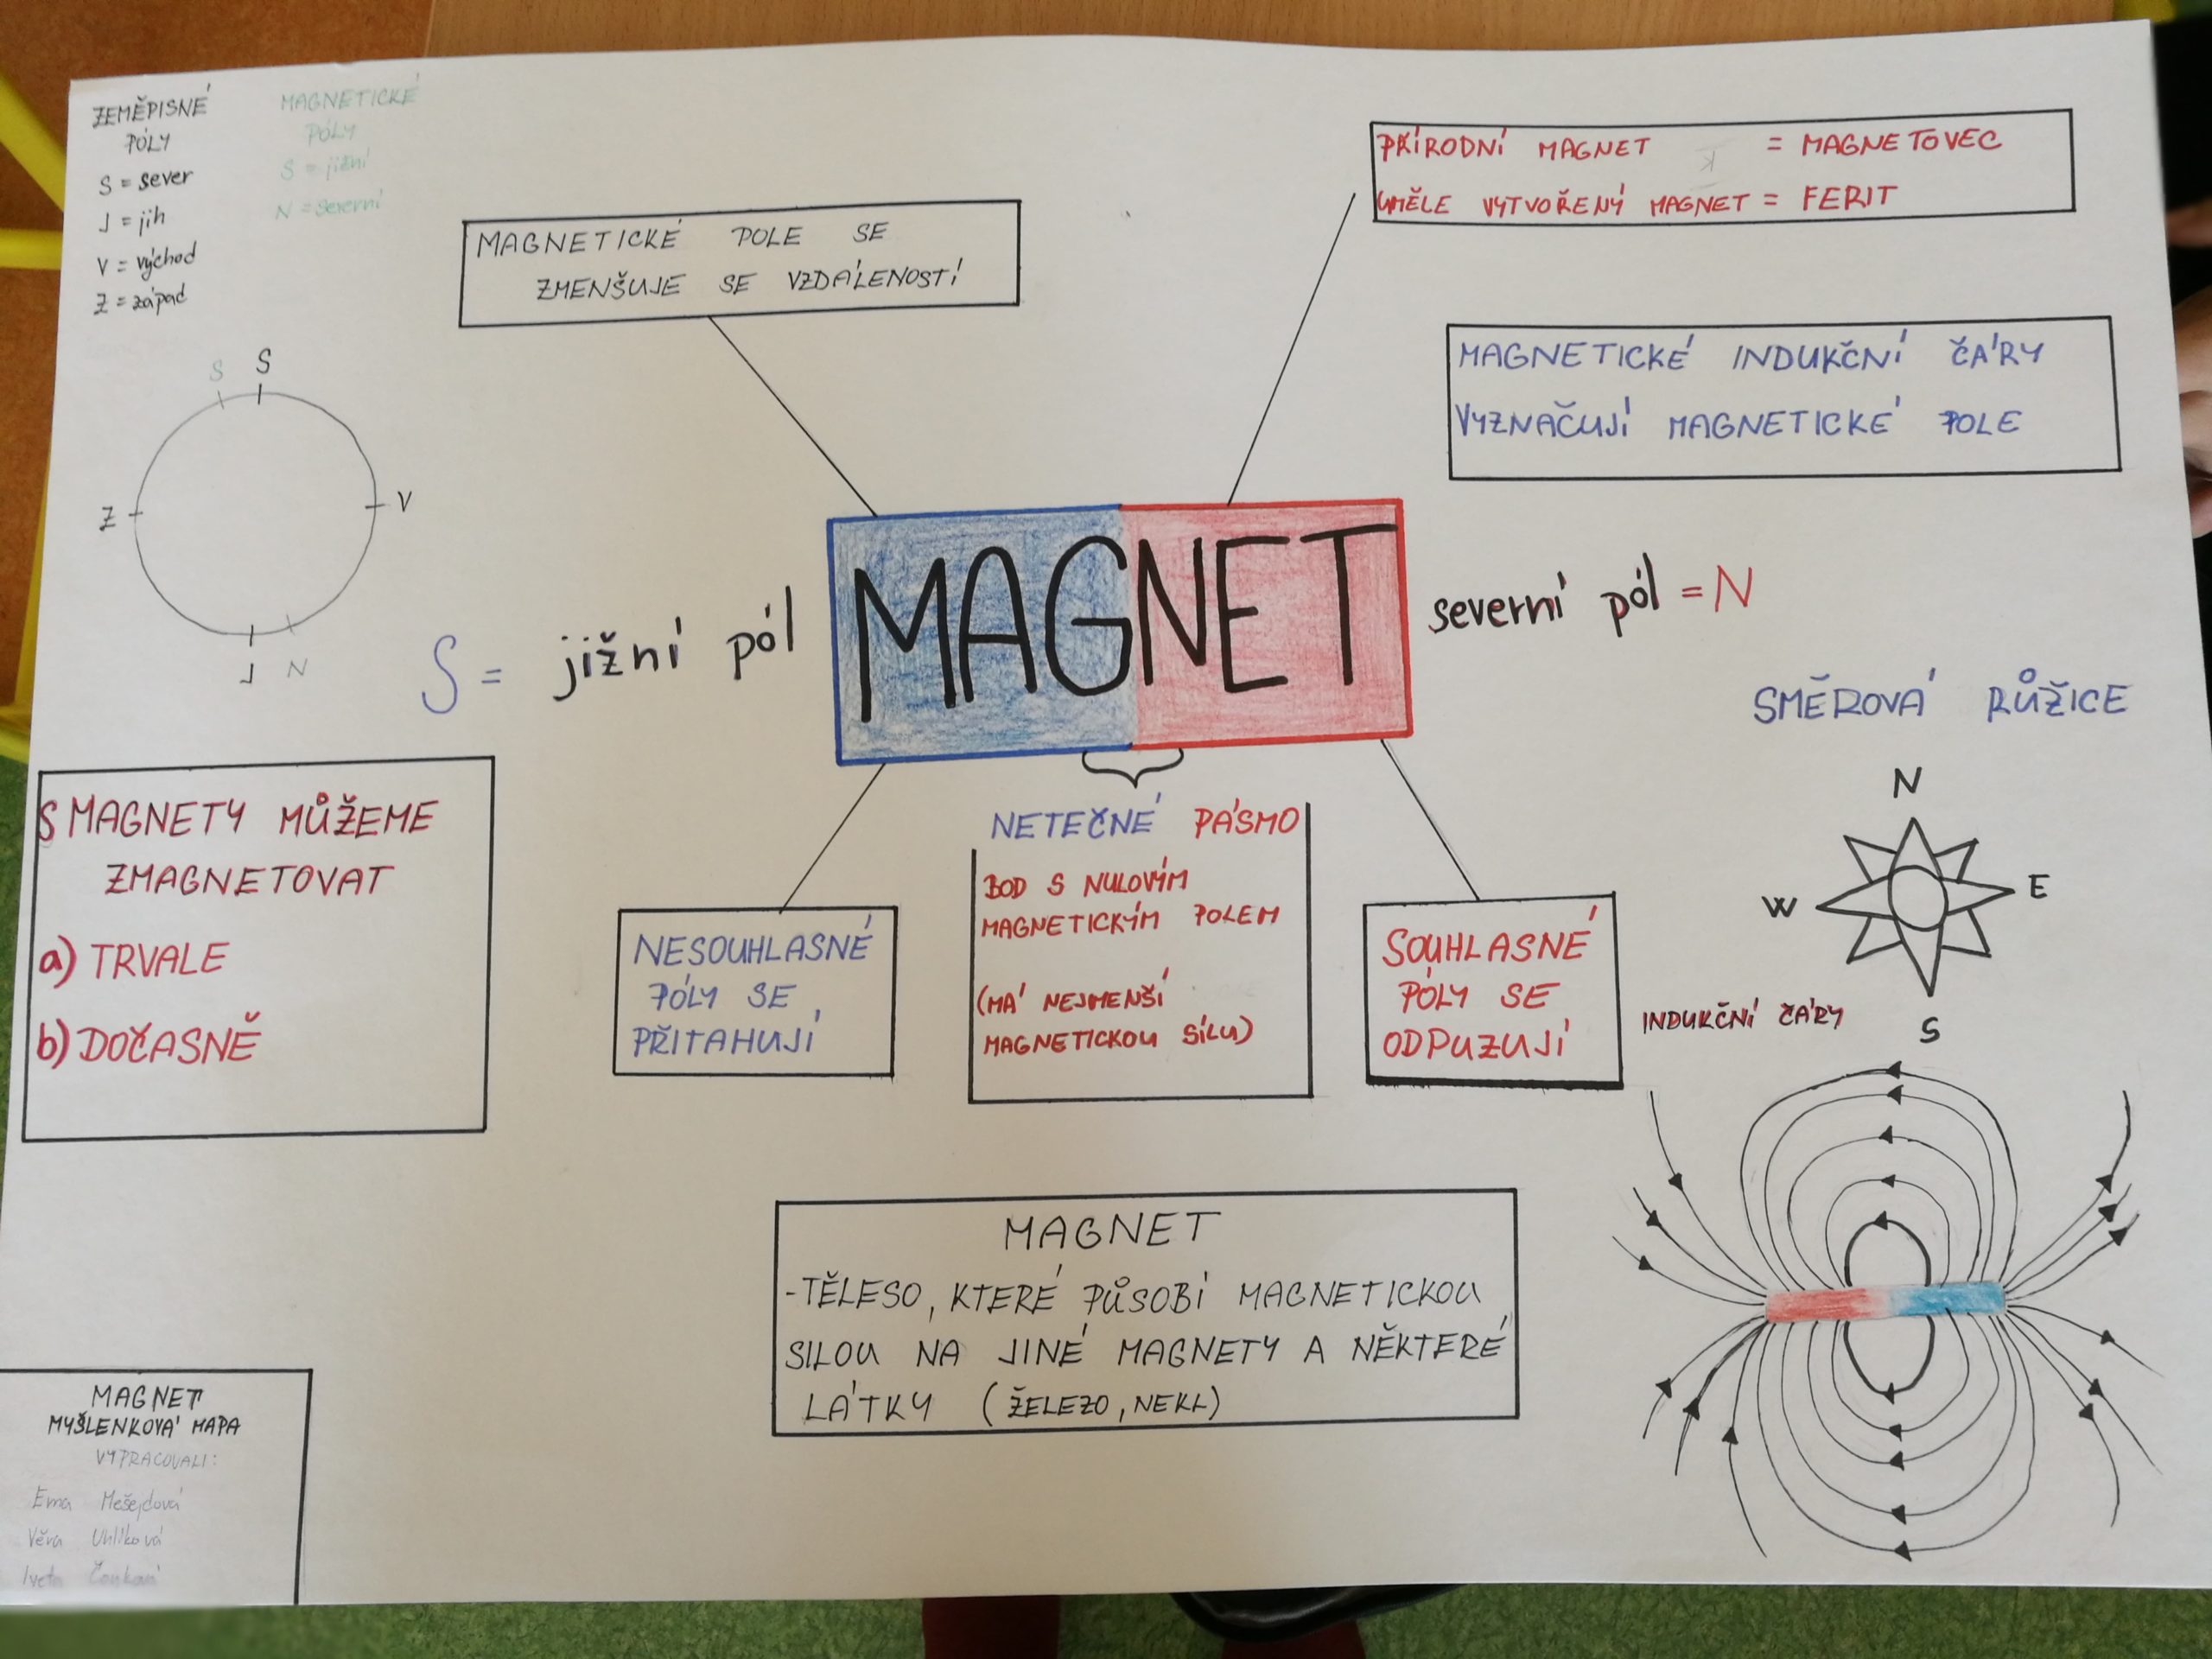 ZEMĚPISNÉ
PÓLY
S = sever
J = jih
V = východ
Z = západ
MAGNETICKÉ
PÓLY
S = jižní
N = severní
S S
Z
V
J N
MAGNETICKÉ POLE SE
ZMENŠUJE SE VZDÁLENOSTÍ
PŘÍRODNÍ MAGNET = MAGNETOVEC
UMĚLE VYTVOŘENÝ MAGNET = FERIT
MAGNETICKÉ INDUKČNÍ ČÁRY
VYZNAČUJÍ MAGNETICKÉ POLE
S = jižní pól
MAGNET
severní pól = N
SMĚROVÁ RŮŽICE
N
W
E
S
S MAGNETY MŮŽEME
ZMAGNETOVAT
a) TRVALE
b) DOČASNĚ
NESOUHLASNÉ
PÓLY SE
PŘITAHUJÍ
NETEČNÉ PÁSMO
BOD S NULOVÝM
MAGNETICKÝM POLEM
(MÁ NEJMENŠÍ
MAGNETICKOU SÍLU)
SOUHLASNÉ
PÓLY SE
ODPUZUJÍ
INDUKČNÍ ČÁRY
MAGNET
-TĚLESO, KTERÉ PŮSOBÍ MAGNETICKOU
SILOU NA JINÉ MAGNETY A NĚKTERÉ
LÁTKY (ŽELEZO, NEKL)
MAGNET
MYŠLENKOVÁ MAPA
VYPRACOVALI:
Ema Mešejdová
Věra Uhlíková
Iveta